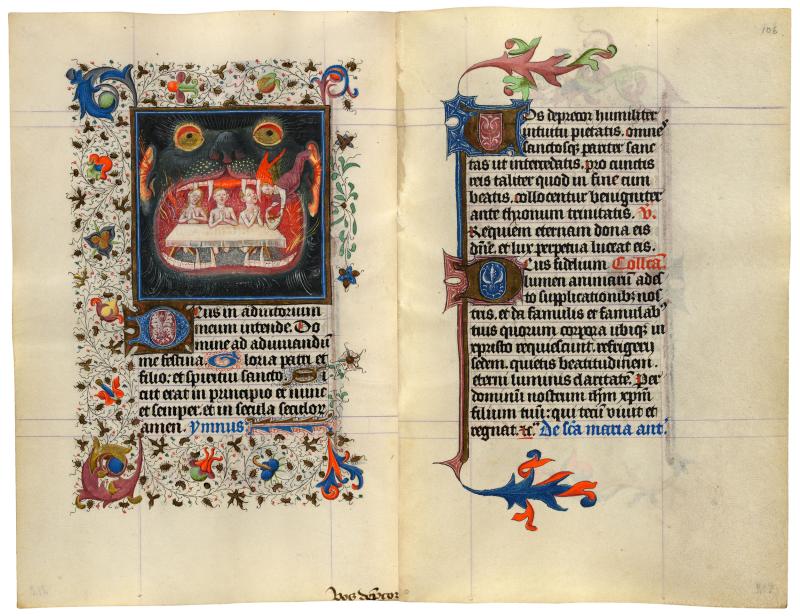 Deus in adiutorium
meum intende. Do
mine ad adiuuandu͞
me festina. Gloria patri et
filio: et spiritui sancto. Si
cut erat in principio et nunc
et semper. et in secula seculor
amen. Ymnus
vos dep͞cor
106
Vos deprecor humiliter
intuitu pietatis. omne͞
sanctosq; pariter sanc
tas ut intercedatis. pro cunctis
reis taliter quod in fine cum
beatis. collocentur benigniter
ante thronum trinitatis. v.
Requiem eternam dona eis
dn͞e. et lux perpetua luceat eis.
Deus fidelium Collc͞a
lumen animaru͞ ades
to supplicationib; nos
tris. et da famulis et famulab;
tuis quorum corpora ubiq; in
xpristo requiescunt. refrigerij
sedem. quietis beatitudinem.
eterni luminis claritate͞. Per
dominu͞ nostrum ih͞m xp͞m
filium tuu͞: qui tecu͞ viuit et
regnat. ⁊c. De sc͞a maria ant.